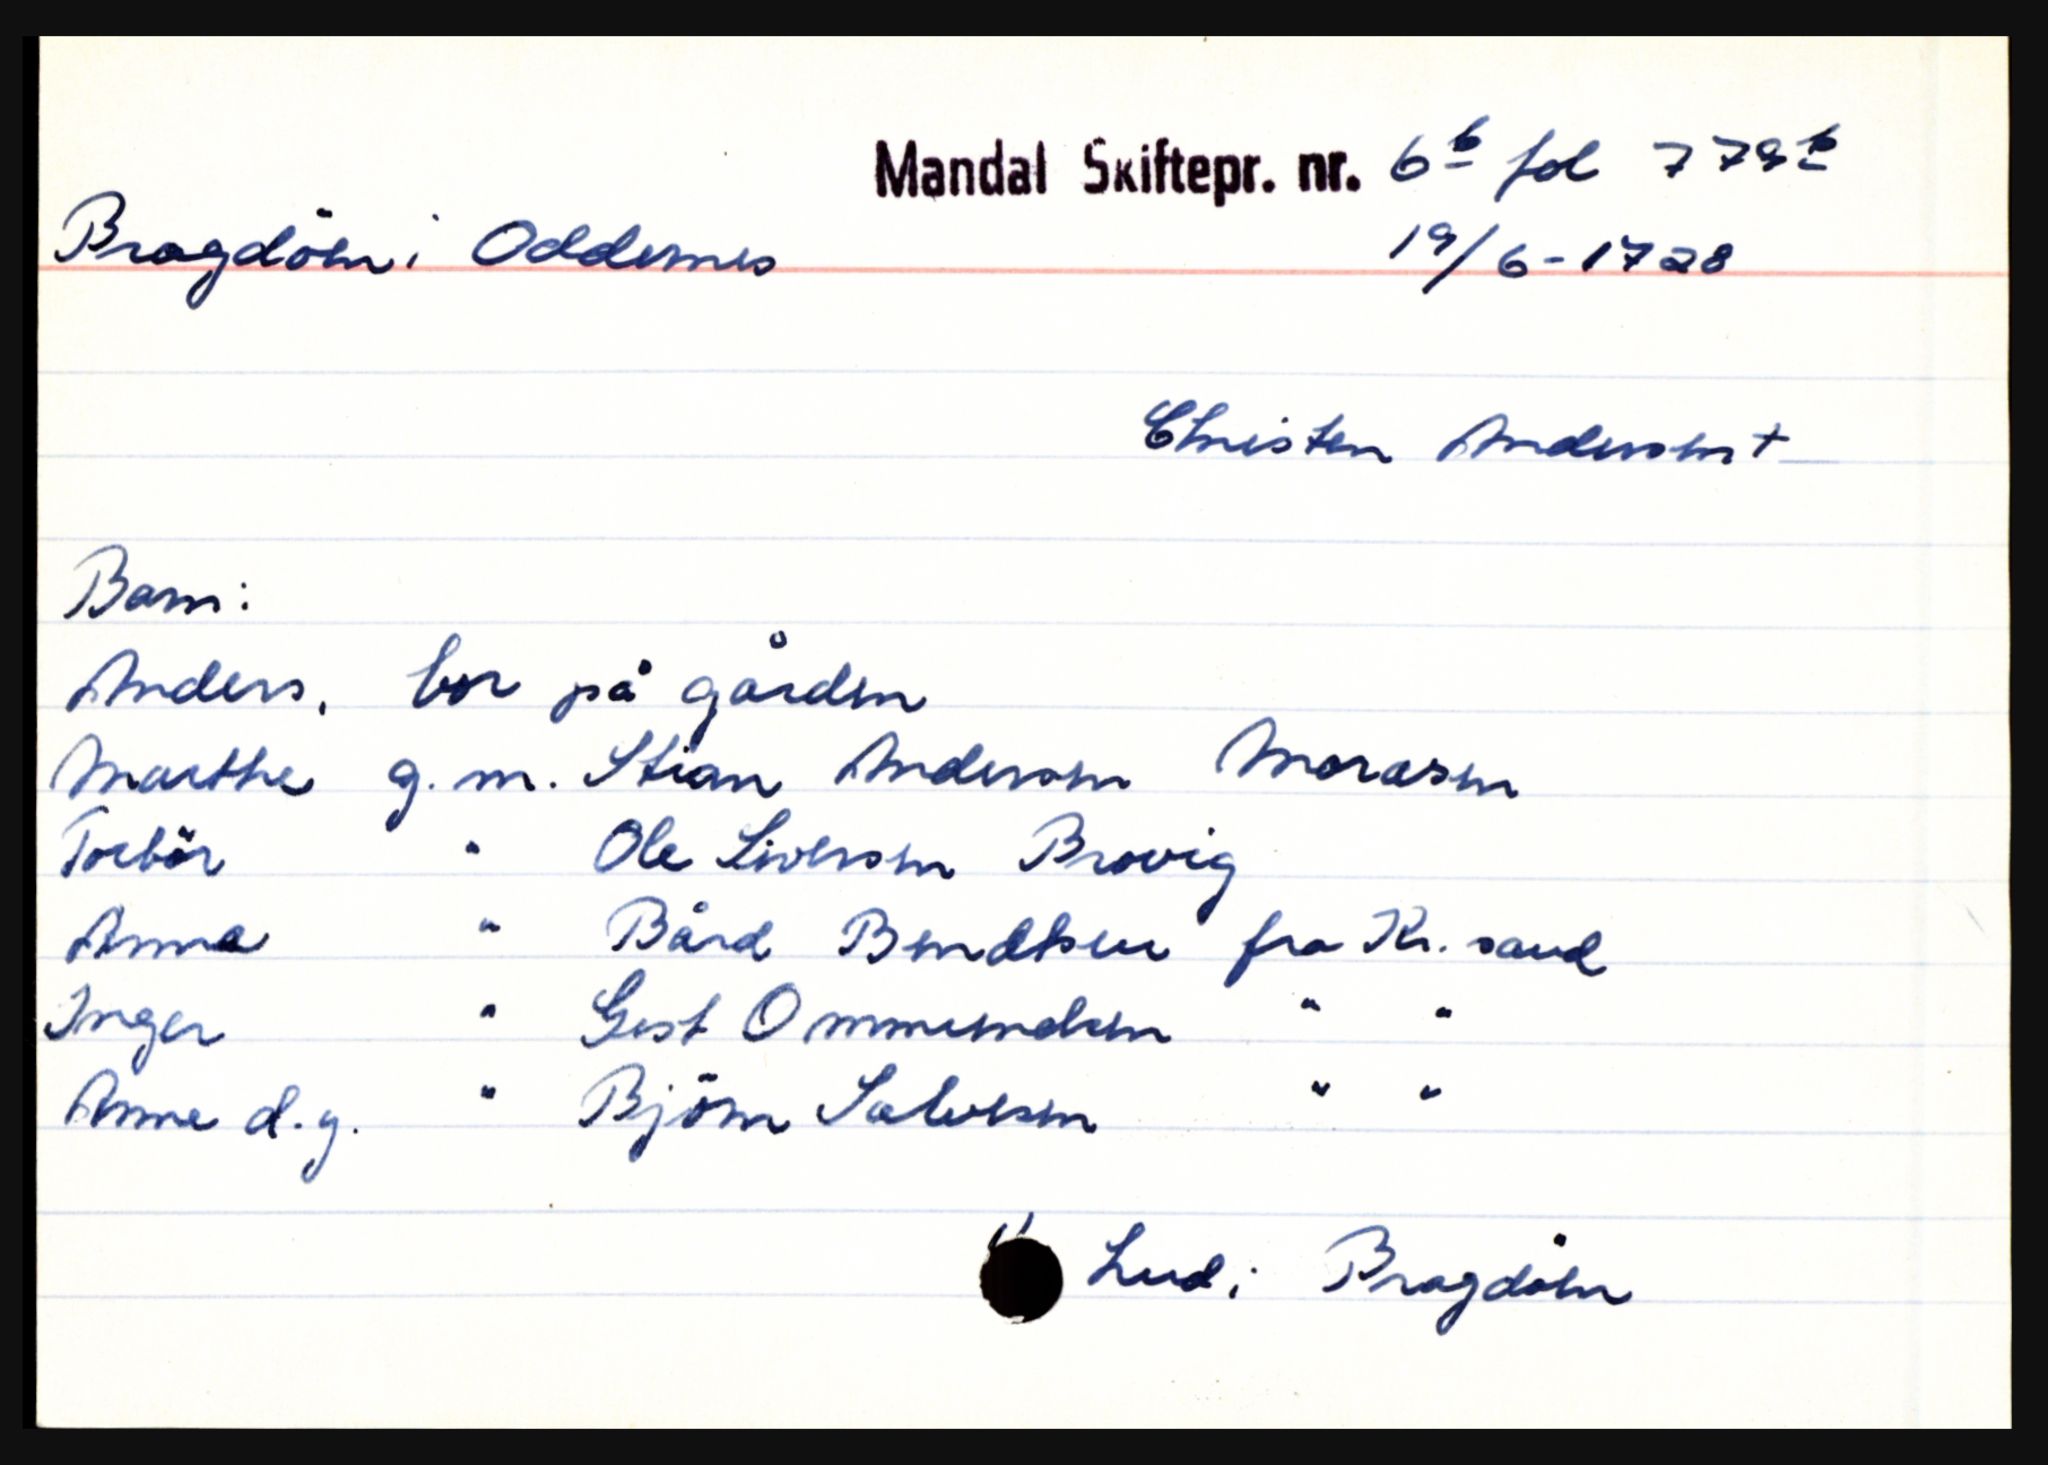 Mandal Skiftepr. nr. 6b fol 779b
Bragdöen i Oddernes 19/6-1728
Christen Andersen +
Barn:
Anders, bor på gården
Marthe g. m. Stian Andersen Moraasen
Torbör " Ole Siversen Brovig
Anna " Bård Bendtsen fra Kr. sand
Inger " Gest Ommundsen " "
Anne d.y. " Björn Salvesen " "
i Bragdöen